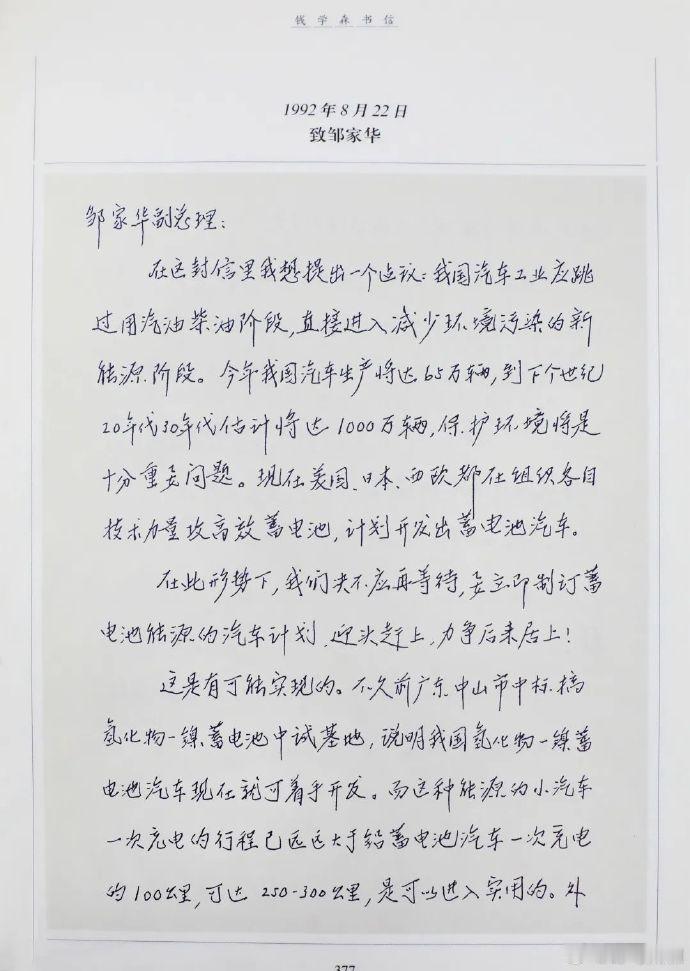 钱学森书信
1992年8月22日
致邹家华
邹家华副总理：
在这封信里我想提出一个建议：我国汽车工业应跳
过用汽油柴油阶段，直接进入减少环境污染的新
能源阶段。今年我国汽车生产将达65万辆，到下个世纪
20年代30年代估计将达1000万辆，保护环境将是
十分重要问题。现在美国、日本、西欧都在组织各自
技术力量攻高效蓄电池，计划开发出蓄电池汽车。
在此形势下，我们决不应再等待，要立即制订蓄
电池能源的汽车计划，迎头赶上，力争后来居上！
这是有可能实现的。不久前广东中山市中标搞
氢化物—镍蓄电池中试基地，说明我国氢化物—镍蓄
电池汽车现在就可着手开发。而这种能源的小汽车
一次充电的行程已远远大于铅蓄电池汽车一次充电
的100公里，可达250-300公里，是可以进入实用的。外
377